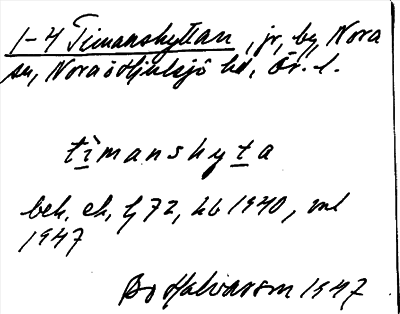 1-4 Timanshyttan, jr, by, Nora
sn, Nora o Hjulsjö hd, Ör. l.
tìmanshyta
bek, ek, lj 72, hb 1940, ml
1947
Bo Halvarson 1947